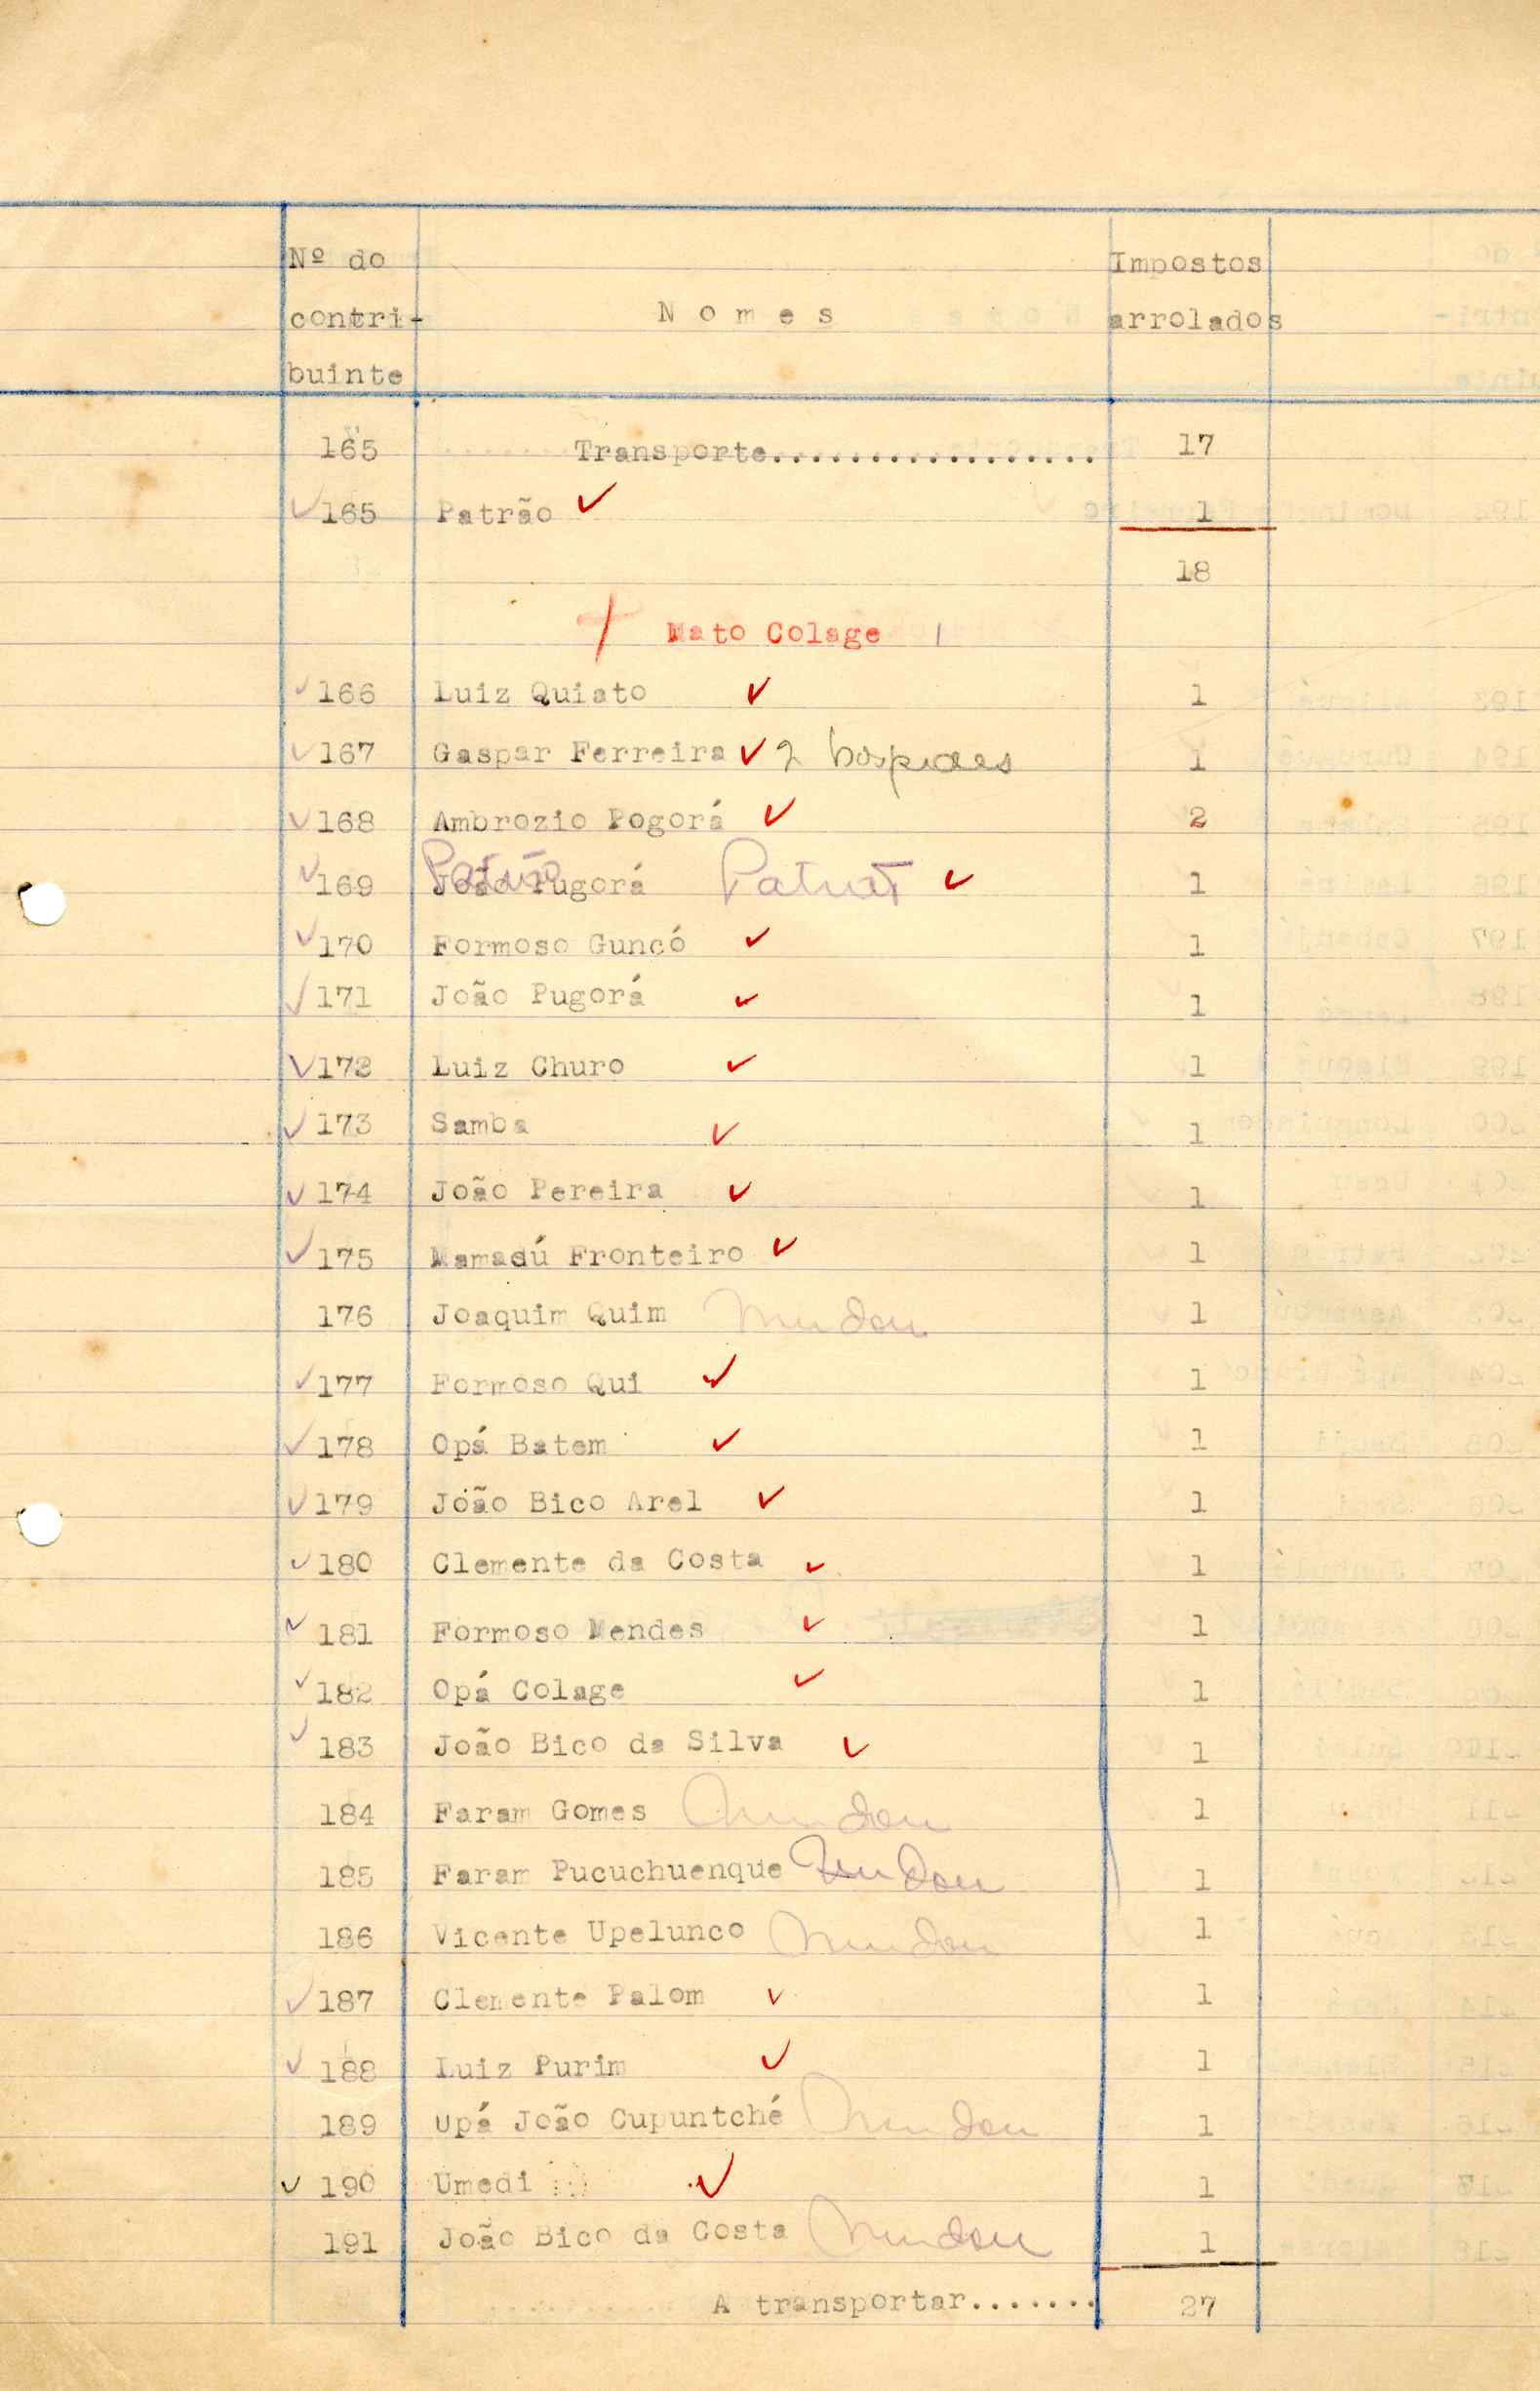 Nº do
contri-
buinte
N o m e s
Impostos
arrolados
165 Transporte.................. 17
✓ 165 Patrão ✓ 1
18
Mato Colage
✓ 166 Luiz Quiato ✓ 1
✓ 167 Gaspar Ferreira ✓ 2 hospedes 1
✓ 168 Ambrozio Pogorá ✓ 2
✓ 169 João Pugorá ✓ 1
✓ 170 Formoso Guncó ✓ 1
✓ 171 João Pugorá ✓ 1
✓ 172 Luiz Churo ✓ 1
✓ 173 Samba ✓ 1
✓ 174 João Pereira ✓ 1
✓ 175 Mamadú Fronteiro ✓ 1
176 Joaquim Quim Mudou 1
✓ 177 Formoso Qui ✓ 1
✓ 178 Opá Batem ✓ 1
✓ 179 João Bico Arel ✓ 1
✓ 180 Clemente da Costa ✓ 1
✓ 181 Formoso Mendes ✓ 1
✓ 182 Opá Colage ✓ 1
✓ 183 João Bico da Silva ✓ 1
184 Faram Gomes Mudou 1
185 Faram Pucuchuenque Mudou 1
186 Vicente Upelunco Mudou 1
✓ 187 Clemente Palom ✓ 1
✓ 188 Luiz Purim ✓ 1
189 Upá João Cupuntché Mudou 1
✓ 190 Umedi ✓ 1
191 João Bico da Costa Mudou 1
A transportar....... 27